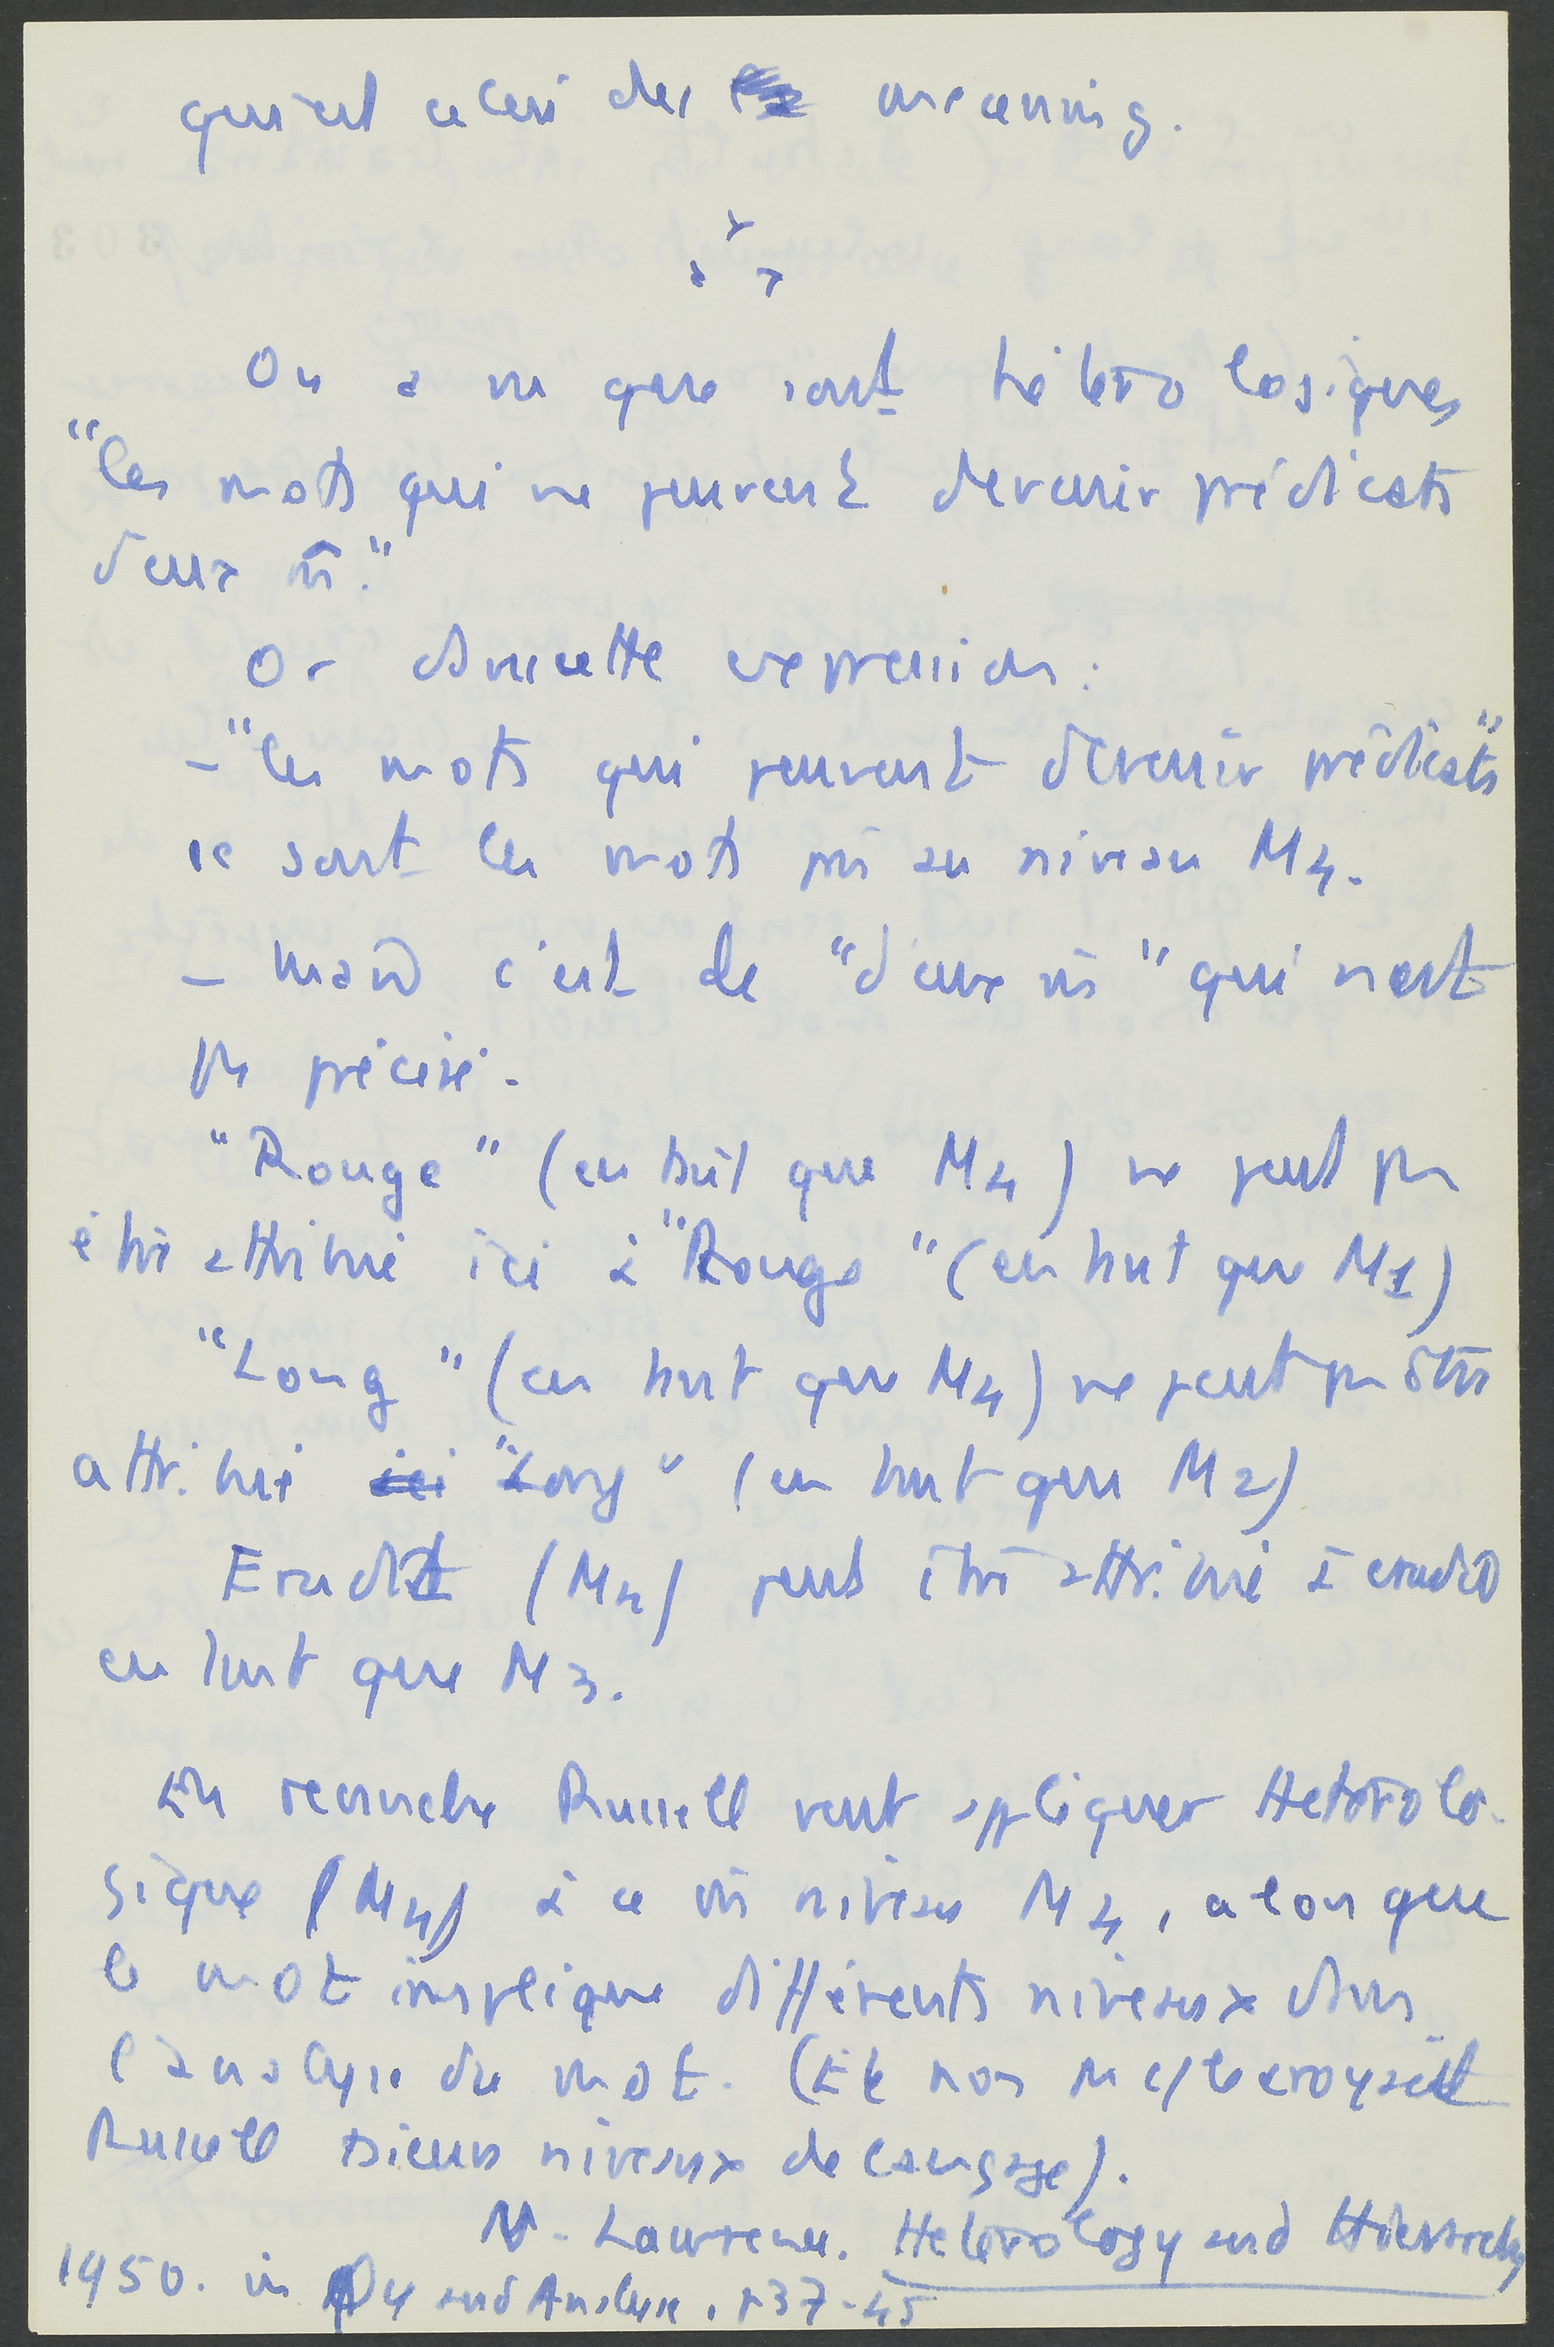 qu'est celui des meaning.
On a vu que sont hétérologiques
"les mots qui ne peuvent devenir prédicats
d'eux m̂."
Or dans cette expression :
- "les mots qui peuvent devenir prédicats"
ce sont les mots pris au niveau M4.
- mais c'est le "d'eux m̂" qui n'est
pas précisé.
"Rouge" (en tant que M4) ne peut pas
être attribué ici à "Rouge" (en tant que M1)
"Long" (en tant que M4) ne peut pas être
attribué "Long" (en tant que M2)
Erudit (M4) peut être attribué à erudit
en tant que M3.
En revanche Russell veut appliquer Hétérolo-
gique (M4) à ce m̂ niveau M4, alors que
le mot implique différents niveaux dans
l'analyse du mot. (Et non pas c/ le croyait
Russell plusieurs niveaux de langage).
N. Lawrence. Heterology and Hierarchy
1950. in and Analysis. p 37-45